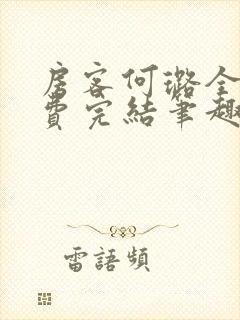 房客何璐全
費完結筆趣
雷語頻